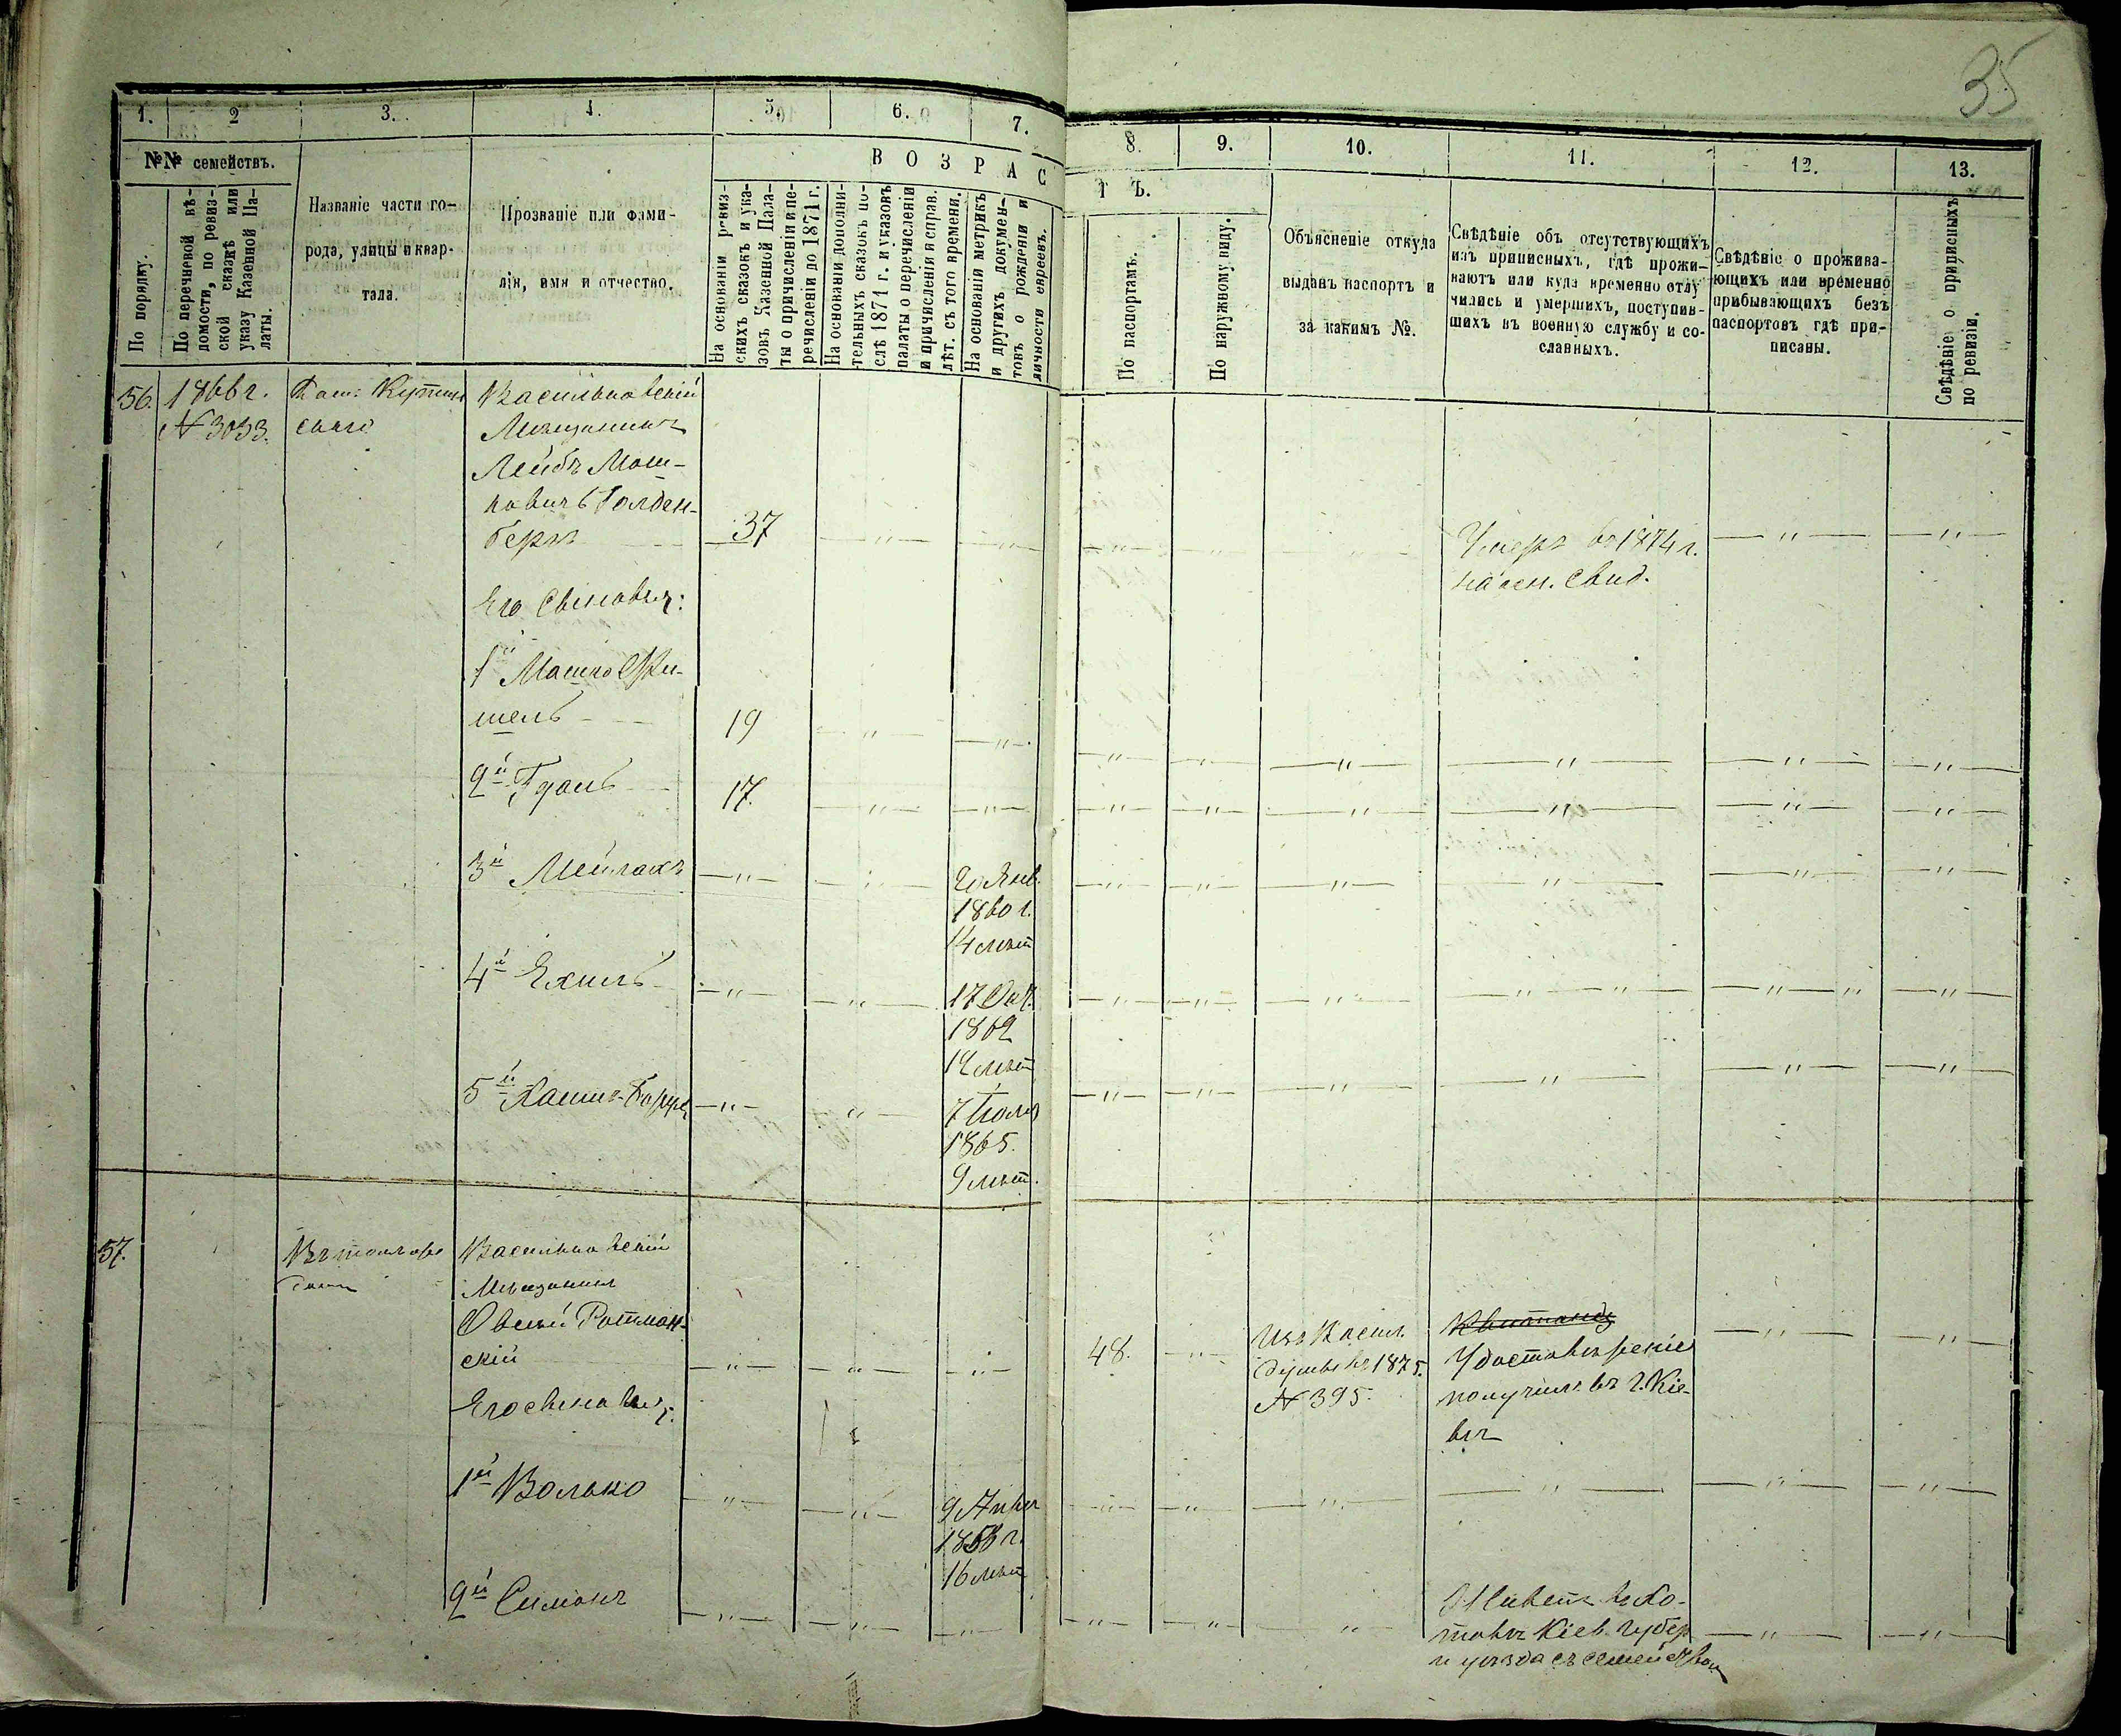 35
1. 2 3. 4. 5. 6. 7. 8. 9. 10. 11. 12. 13.
№№ семействъ.
По порядку.
По перечневой вѣ-
домости, по ревиз-
ской сказкѣ или
указу Казенной Па-
латы.
Названіе части го-
рода, улицы и квар-
тала.
Прозваніе или фами-
лія, имя и отчество.
ВОЗРАСТЪ.
На основаніи ревиз-
скихъ сказокъ и ука-
зовъ Казенной Пала-
ты о причисленіи и пе-
речисленіи до 1871 г.
На основаніи дополни-
тельныхъ сказокъ по-
слѣ 1871 г. и указовъ
палаты о перечисленіи
и причисленіи и справ.
лѣт. съ того времени.
На основаніи метрикъ
и другихъ докумен-
товъ о рожденіи и
личности евреевъ.
По паспортамъ.
По наружному виду.
Объясненіе откуда
выданъ паспортъ и
за какимъ №.
Свѣдѣніе объ отсутствующихъ
изъ приписныхъ, гдѣ прожи-
ваютъ или куда временно отлу
чились и умершихъ, поступив-
шихъ въ военную службу и со-
сланныхъ.
Свѣдѣніе о прожива-
ющихъ или временно
прибывающихъ безъ
паспортовъ гдѣ при-
писаны.
Свѣдѣніе о приписныхъ
по ревизіи.
56. 1866 г.
№ 3033.
Васильковскій
Мѣщанинъ
Лейбъ Мош-
ковичъ Голден-
бергъ 37
Умеръ въ 1874 г.
Его сыновья:
1й Мошко
19
2й 17.
3й Мейлахъ 20 Янв.
1860 г.
14 лѣтъ
4й Ехиль 17 Окт.
1862
12 лѣтъ
5й 7 Іюля
1865.
9 лѣт.
57.
Васильковскій
Мѣщанинъ
Овсѣй Ротман-
скій 48.
Изъ Васил.
Думы въ 1875.
№ 395.
Удостовѣреніе
получилъ въ г. Кіе-
вѣ
Его сыновья:
1й Волько 9
1858 г.
16 лѣтъ
2й Симонъ
Живетъ въ Хо-
товѣ Кіев. губер
и уѣзда съ семейством